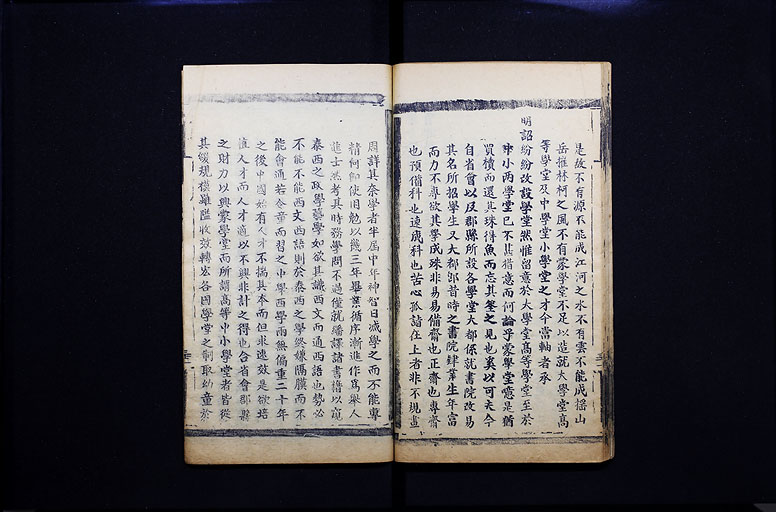 是故不有源不能成江河之水不有雲不能成搖山
岳摧林柯之風不有蒙學堂不足以造就大學堂高
等學堂及中學堂小學堂之才今當軸者承
明詔紛紛改設學堂然惟留意於大學堂高等學堂至於
中小两學堂已不甚措意而何論乎蒙學堂噫是猶
買櫝而還其珠得魚而忘其筌之見也奚以可夫今
自省會以及郡縣所設各學堂大都係就書院改易
其名所招學生又大都即昔時之書院肄業生年富
而力不專欲其學成殊非易易備齋也正齋也專齋
也預備科也速成科也苦心孤詣在上者非不規畫
周詳其奈學者半屆中年神智日減學之而不能專
精何即使相勉以幾三年畢業循序漸進作為舉人
進士然考其時務學問不過僅就繙譯諸書擔以窺
泰西之政學藝學如欲其識西文而通西語也勢必
不能不能西文西語則於泰西之學終嫌隔膜而不
能會通若令童而習之中學西學兩無偏重二十年
之後中國始有人才不揣其本而但求速效是欲培
植人才而人才適以不興非計之得也合省會郡縣
之財力以興蒙學堂而所謂高等中小學堂者皆從
其緩規模雖隘收效轉宏各國學堂之制取幼童於